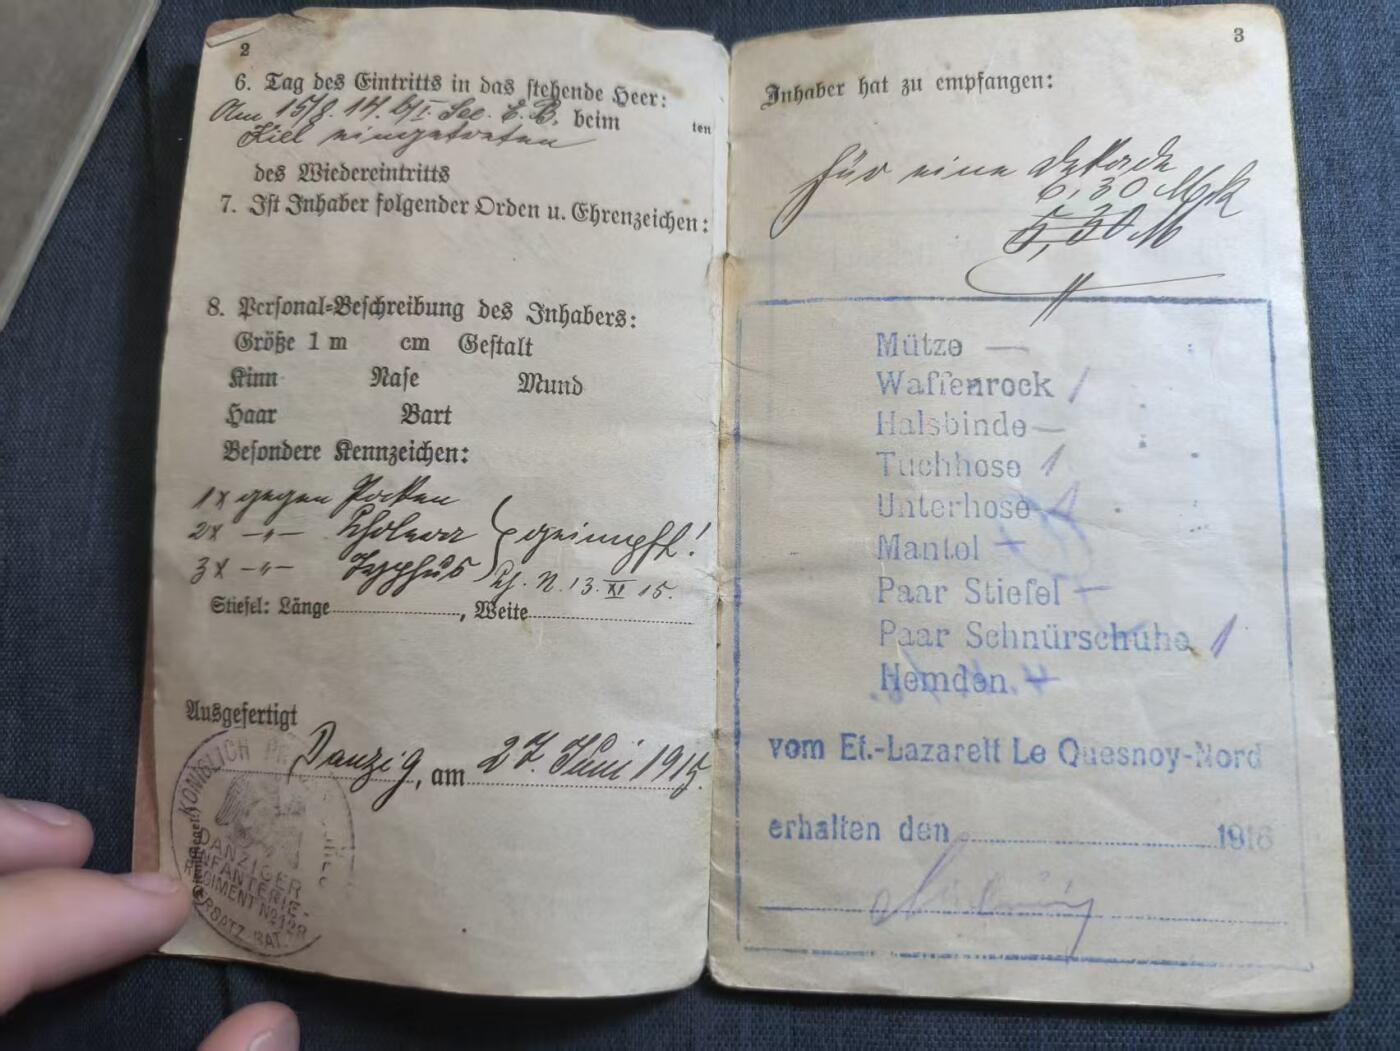 2
6. Tag des Eintritts in das stehende Heer:
Am 15/8. 14. b/I. See. E. B. beim ten
Kiel eingetreten
des Wiedereintritts
7. Ist Inhaber folgender Orden u. Ehrenzeichen:
8. Personal-Beschreibung des Inhabers:
Größe 1 m cm Gestalt
Kinn Nase Mund
Haar Bart
Besondere Kennzeichen:
1x gegen Pocken
2x -"- Cholera geimpft!
3x -"- Typhus 13. XI 15.
Stiefel: Länge, Weite
Ausgefertigt
Danzig, am 27. Juni 1915.
KÖNIGLICH
DANZIGER
INFANTERIE-
REGIMENT No 128
ERSATZ-BAT.
(Dienstsiegel)
3
Inhaber hat zu empfangen:
für eine Dekade
6,30 Mk
5,30 M
Mütze —
Waffenrock 1
Halsbinde —
Tuchhose 1
Unterhose 1
Mantel
Paar Stiefel —
Paar Schnürschuhe 1
Hemden
vom Et.-Lazarett Le Quesnoy-Nord
erhalten den 1916